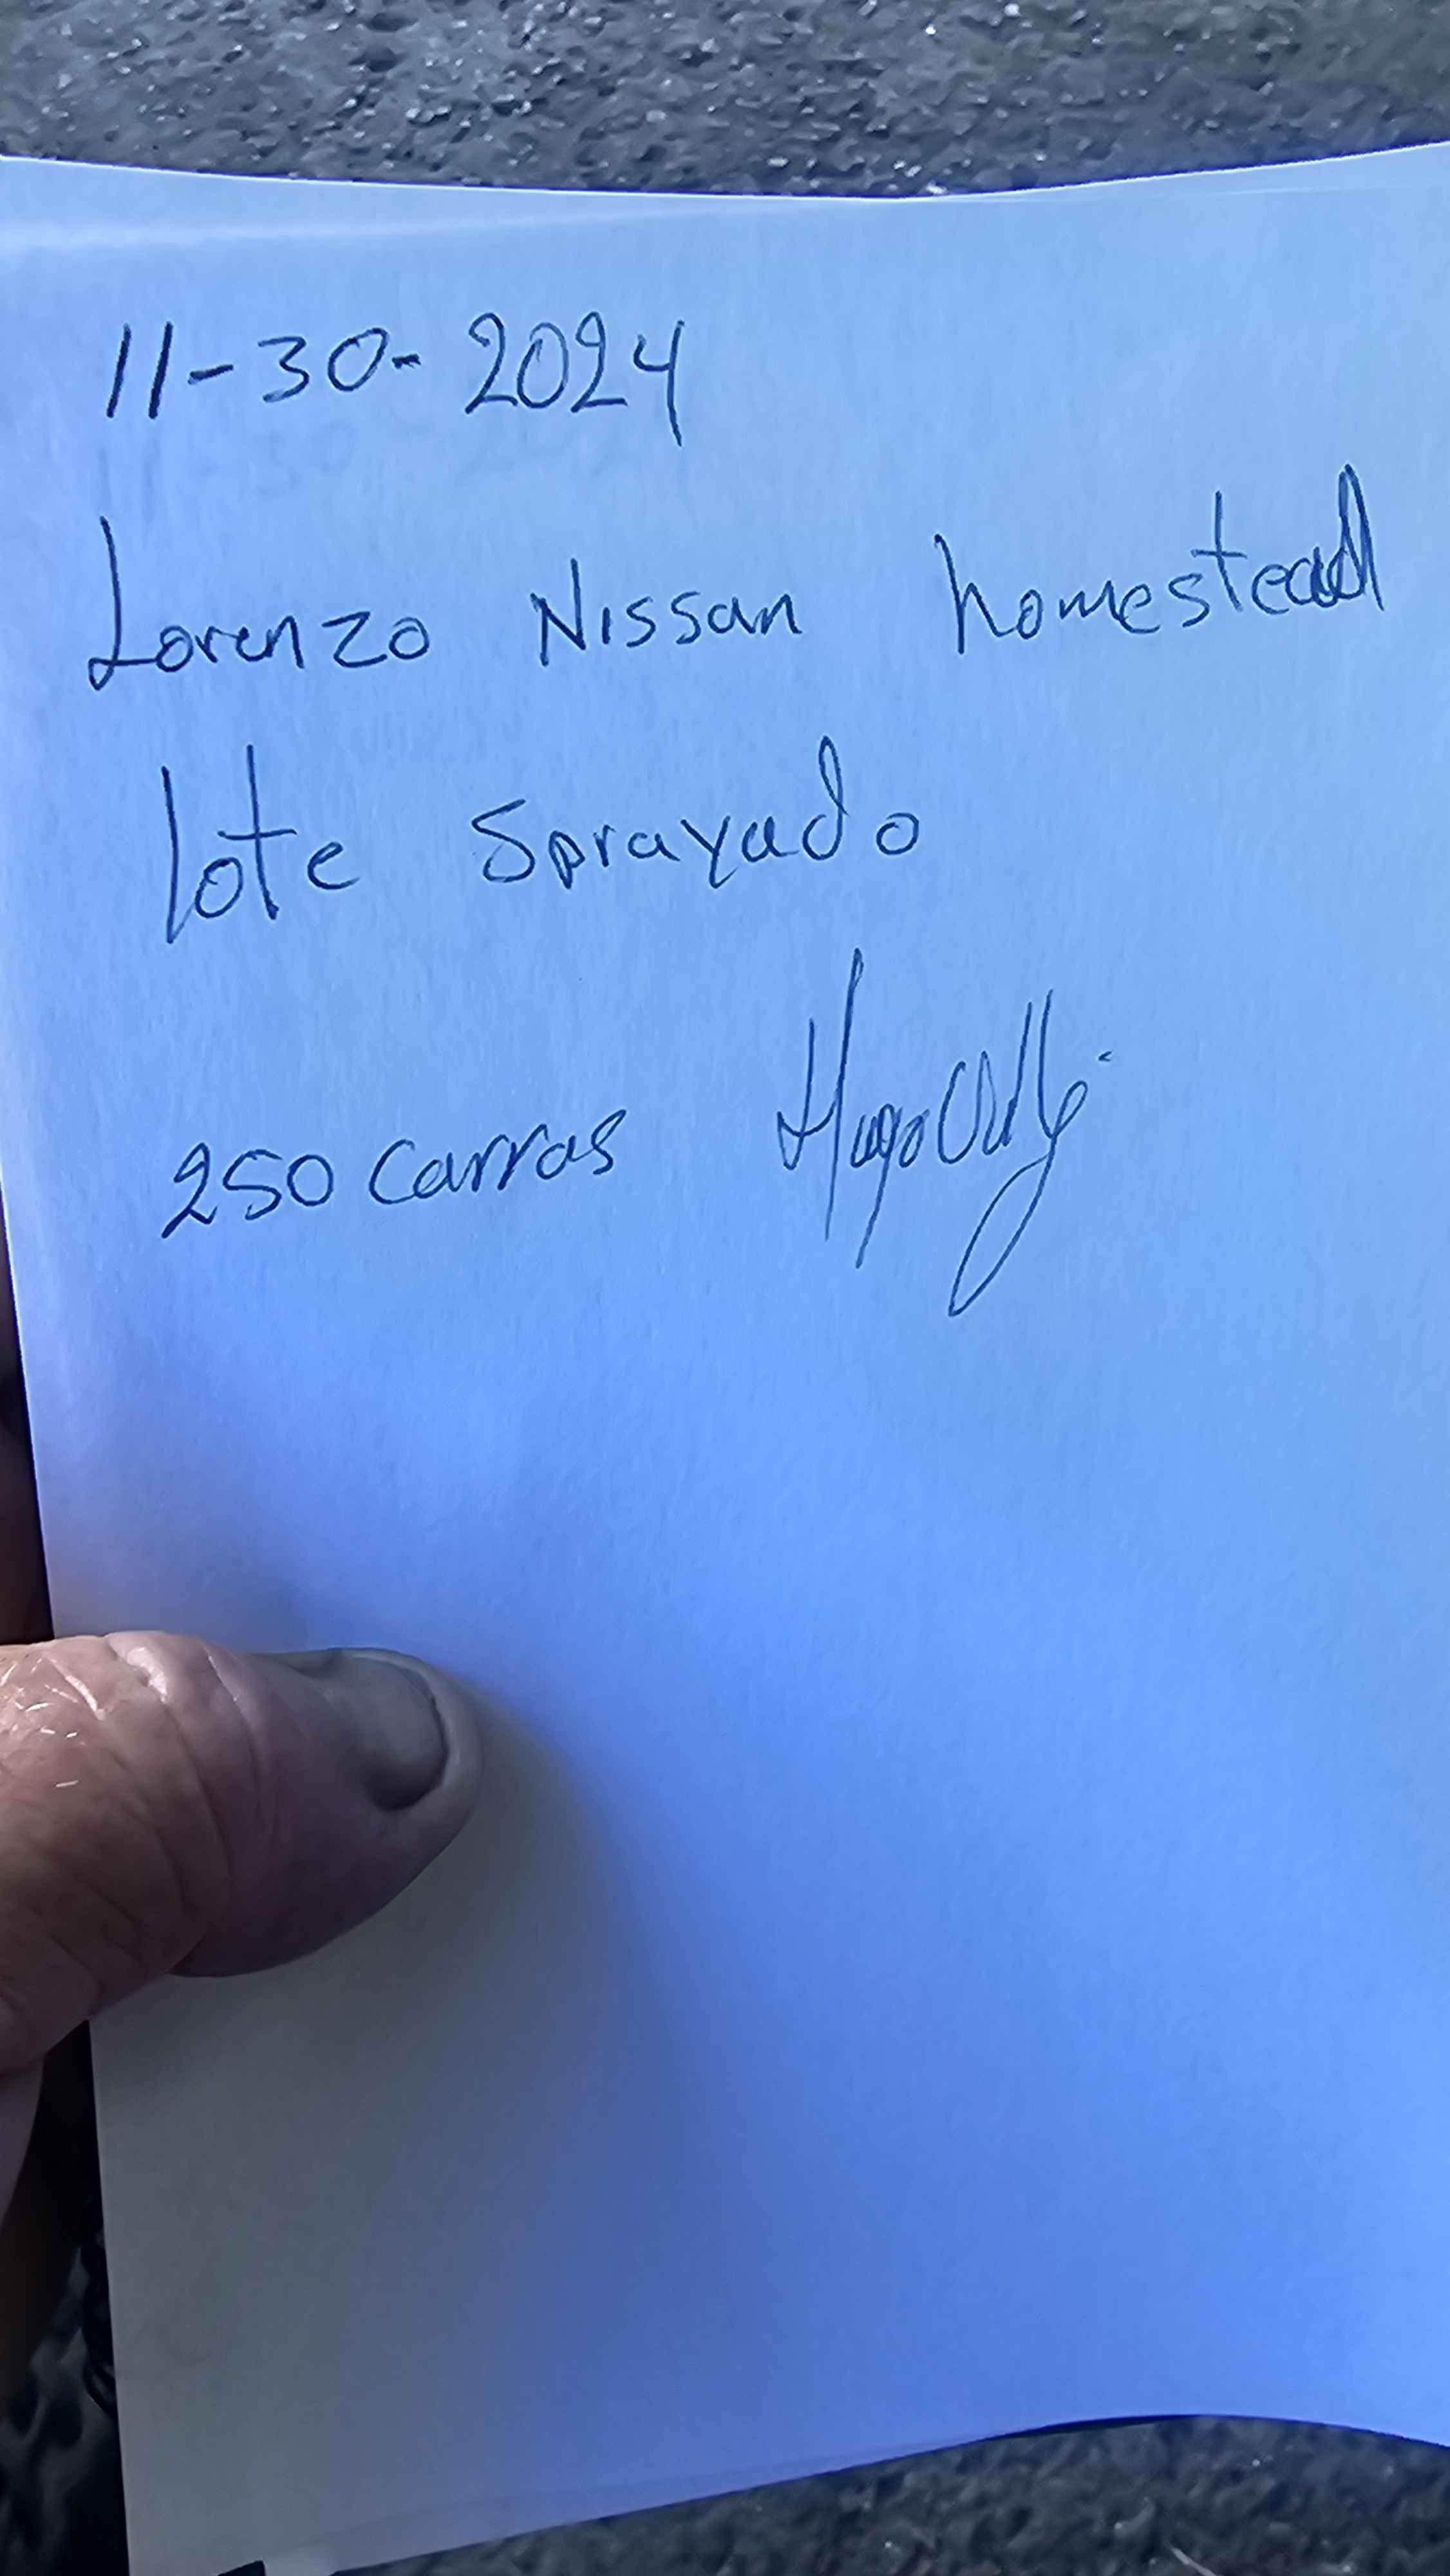 11-30-2024
Lorenzo Nissan homestead
lote Sprayado
250 Carros Hugo